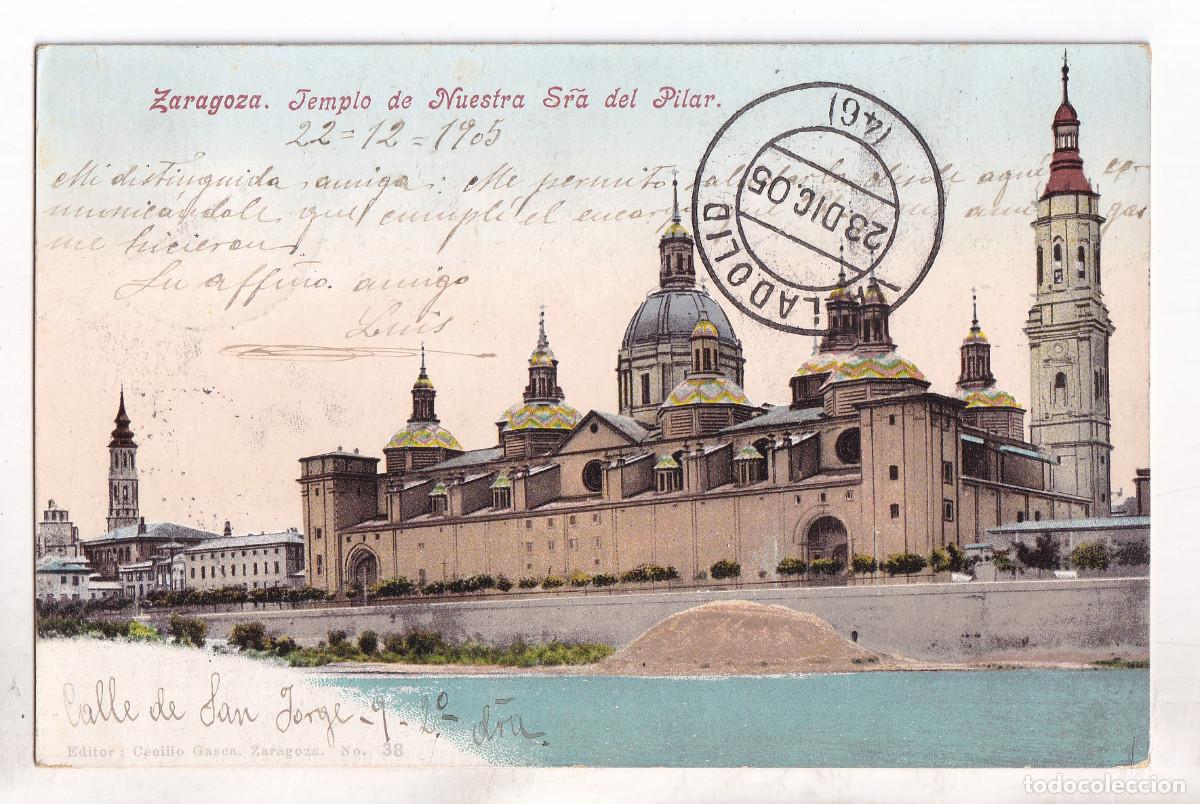 Zaragoza. Templo de Nuestra Srã del Pilar.
22=12=1905
Mi distinguida amiga: Me permito desde aquí co-
municandole que cumplí el
me hicieron
Su affmo. amigo
Luis
(46)
23.DIC.05
VALLADOLID
Calle de San Jorge-9-2º dña.
Editor: Cecilio Gasca. Zaragoza. No. 38
todocoleccion